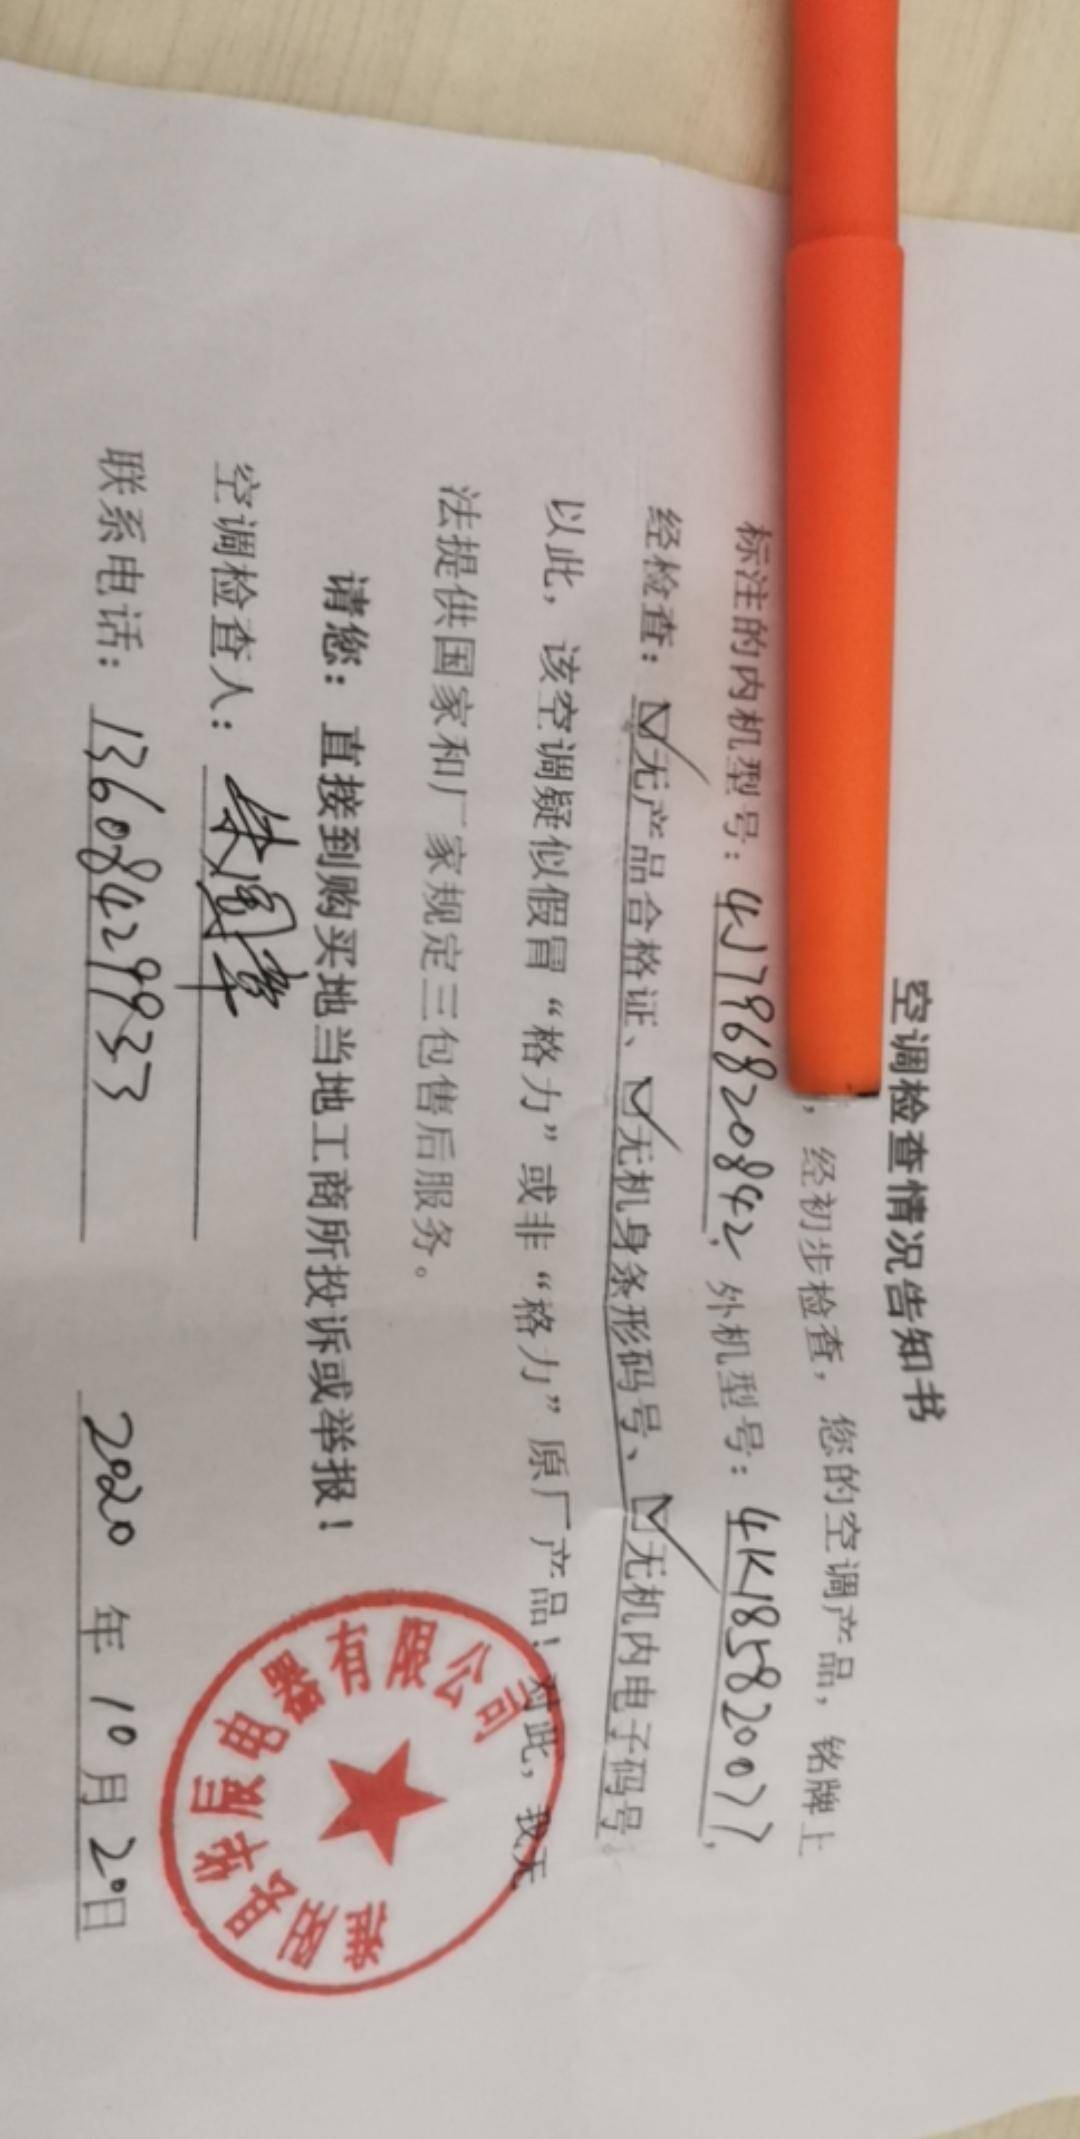 空调检查情况告知书
，经初步检查，您的空调产品，铭牌上
标注的内机型号：4J796820842，外机型号：4K185820077，
经检查：☑无产品合格证、☑无机身条形码号、☑无机内电子码号
以此，该空调疑似假冒“格力”或非“格力”原厂产品！对此，我无
法提供国家和厂家规定三包售后服务。
请您：直接到购买地当地工商所投诉或举报！
空调检查人：朱国华
联系电话：13608429933 2020年10月20日
县华辰电器有限公司